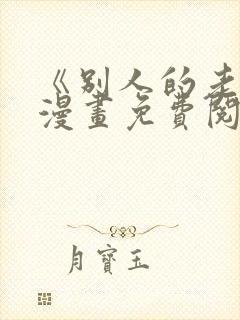 《别人的走
漫畫免費閱
月寶玉